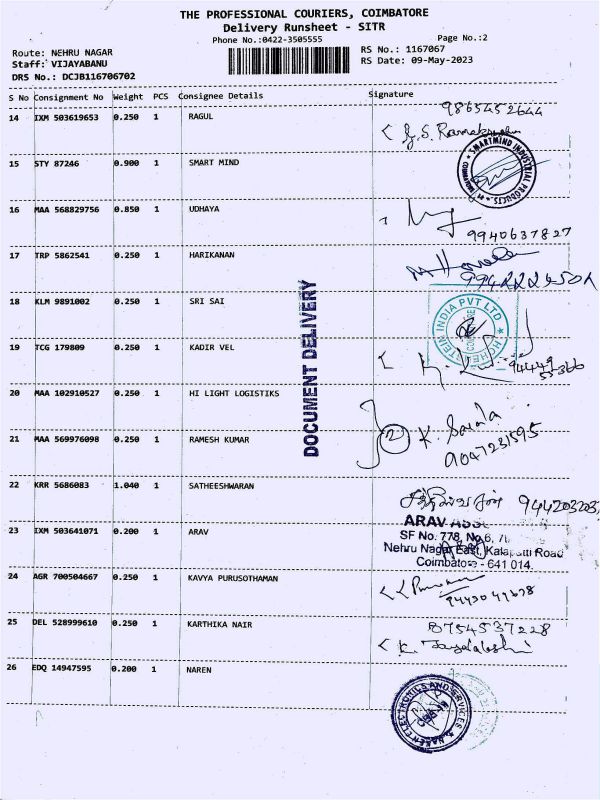 THE PROFESSIONAL COURIERS, COIMBATORE
Delivery Runsheet - SITR
Phone No.:0422-3505555 Page No.:2
Route: NEHRU NAGAR RS No.: 1167067
Staff: VIJAYABANU RS Date: 09-May-2023
DRS No.: DCJB116706702
S No Consignment No Weight PCS Consignee Details Signature
9865452644
14 IXM 503619653 0.250 1 RAGUL
15 STY 87246 0.900 1 SMART MIND
SMARTMIND INDUSTRIAL PRODUCTS
16 MAA 568829756 0.850 1 UDHAYA
9940637827
17 TRP 5862541 0.250 1 HARIKANAN
18 KLM 9891002 0.250 1 SRI SAI
INDIA PVT LTD
19 TCG 179809 0.250 1 KADIR VEL
20 MAA 102910527 0.250 1 HI LIGHT LOGISTIKS
DOCUMENT DELIVERY
2 K. Sarala
21 MAA 569976098 0.250 1 RAMESH KUMAR
9047231595
22 KRR 5686083 1.040 1 SATHEESHWARAN
23 IXM 503641071 0.200 1 ARAV
ARAV
SF No. 778, No.6,
Nehru Nagar East, Kalapatti Road
Coimbatore - 641 014.
24 AGR 700504667 0.250 1 KAVYA PURUSOTHAMAN
25 DEL 528999610 0.250 1 KARTHIKA NAIR
8754537228
26 EDQ 14947595 0.200 1 NAREN
NAREN ELECTRONICS AND SERVICES